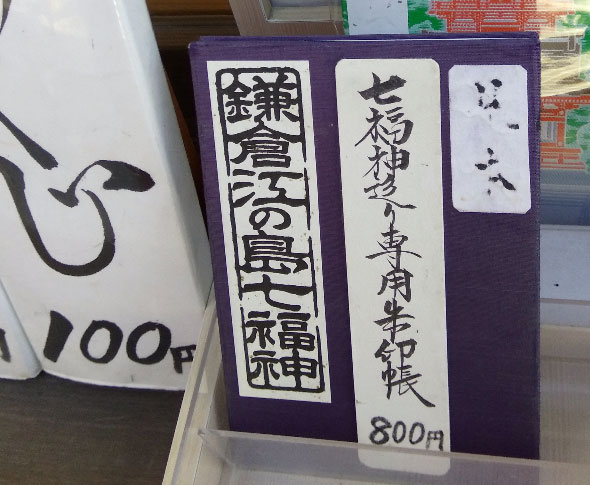 見本
七福神巡り専用朱印帳
800円
鎌倉江の島七福神
100円
円